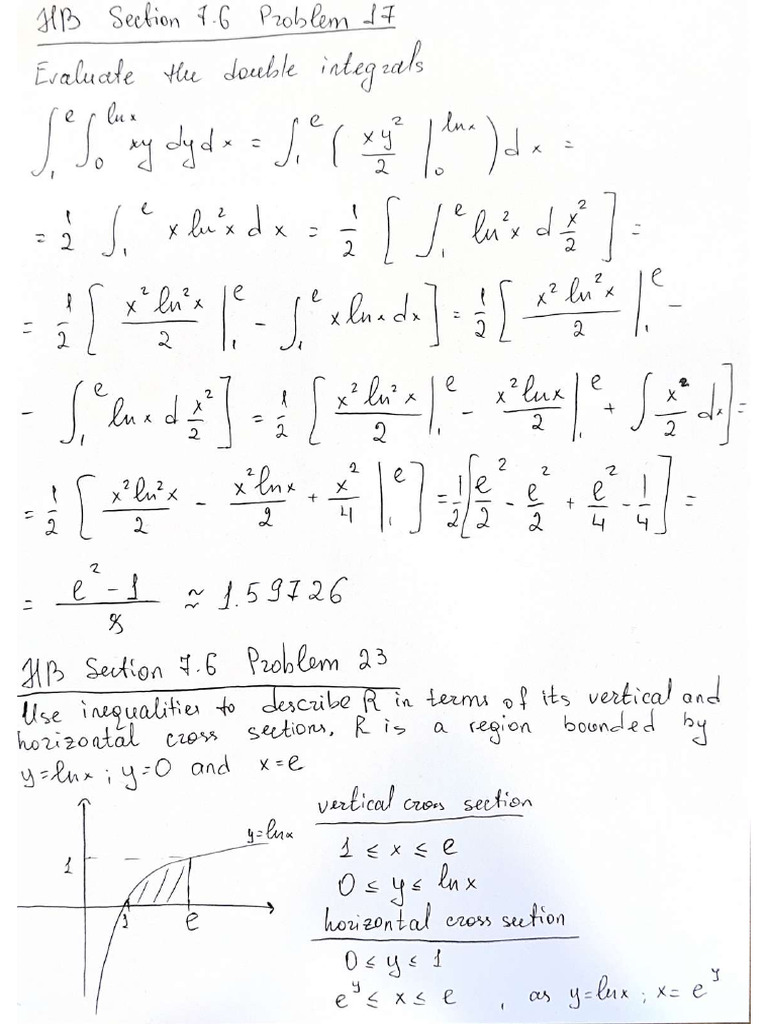 HB Section 7.6 Problem 17
Evaluate the double integrals
∫₁^e ∫₀^{lnx} xy dydx = ∫₁^e ( xy²/2 |₀^{lnx} ) dx =
= 1/2 ∫₁^e x ln²x dx = 1/2 [ ∫₁^e ln²x d x²/2 ] =
= 1/2 [ x² ln²x/2 |₁^e − ∫₁^e x lnx dx ] = 1/2 [ x² ln²x/2 |₁^e −
− ∫₁^e lnx d x²/2 ] = 1/2 [ x² ln²x/2 |₁^e − x² lnx/2 |₁^e + ∫ x²/2 dx ] =
= 1/2 [ x² ln²x/2 − x² lnx/2 + x²/4 |₁^e ] = 1/2 [ e²/2 − e²/2 + e²/4 − 1/4 ] =
= e² − 1/8 ≈ 1.59726
HB Section 7.6 Problem 23
Use inequalities to describe R in terms of its vertical and
horizontal cross sections, R is a region bounded by
y=lnx ; y=0 and x=e
vertical cross section
1 ≤ x ≤ e
0 ≤ y ≤ lnx
horizontal cross section
0 ≤ y ≤ 1
e^y ≤ x ≤ e , as y=lnx ; x= e^y
y=lnx
1
1 e